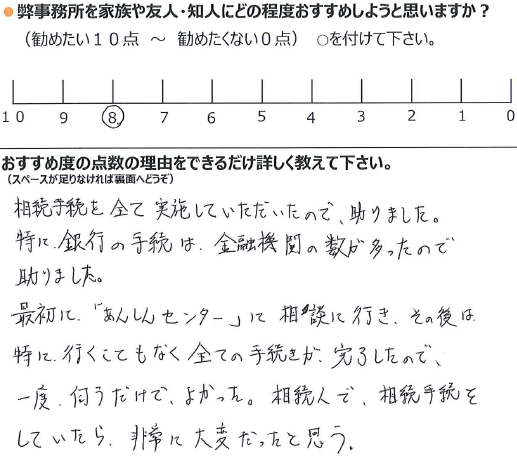 ●弊事務所を家族や友人・知人にどの程度おすすめしようと思いますか？
（勧めたい１０点　～　勧めたくない０点）　○を付けて下さい。
10 9 8 7 6 5 4 3 2 1 0
おすすめ度の点数の理由をできるだけ詳しく教えて下さい。
（スペースが足りなければ裏面へどうぞ）
相続手続を全て実施していただいたので、助りました。
特に、銀行の手続は、金融機関の数が多ったので
助りました。
最初に、「あんしんセンター」に相談に行き、その後は
特に行くこともなく全ての手続きが、完了したので、
一度、伺うだけで、よかった。相続人で、相続手続を
していたら、非常に大変だったと思う。